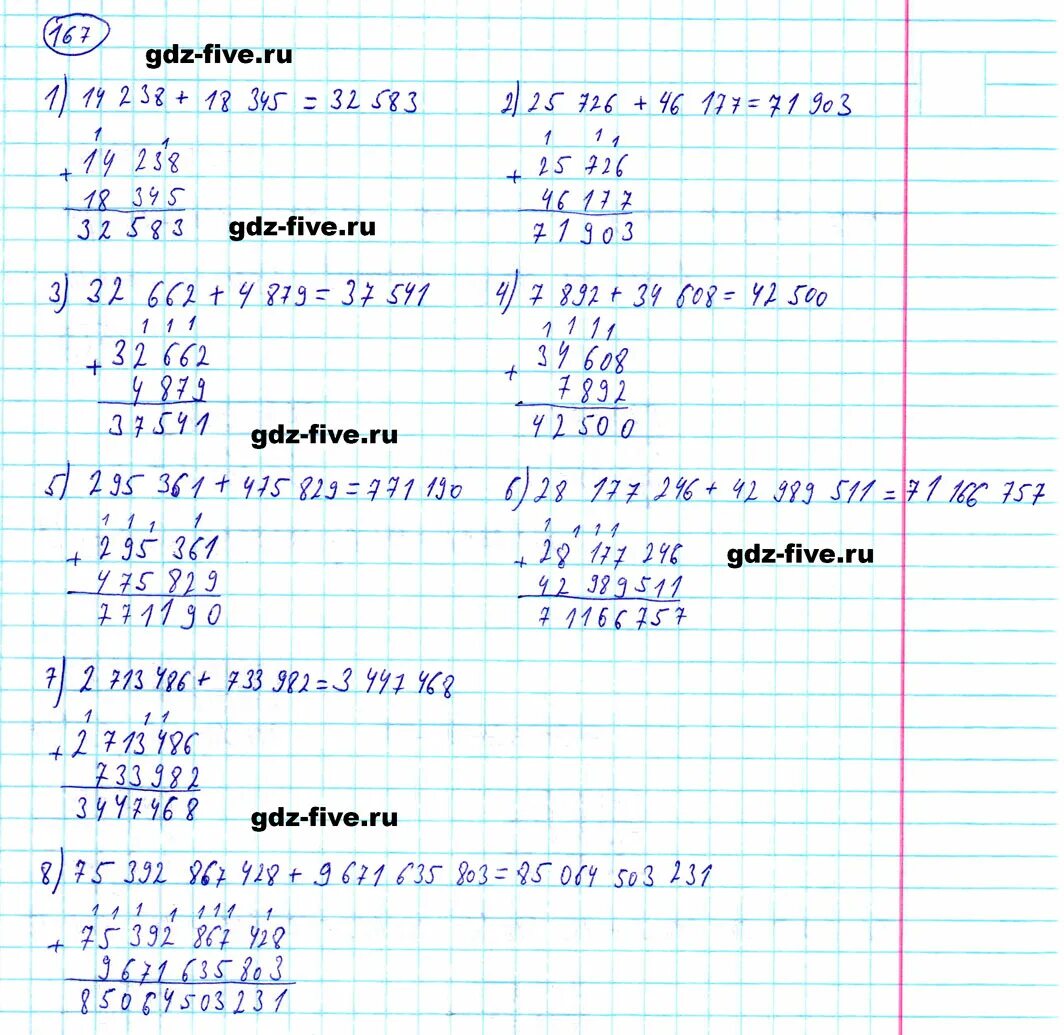 167
gdz-five.ru
1) 14 238 + 18 345 = 32 583
1 1
+ 14 238
18 345
32 583
gdz-five.ru
2) 25 726 + 46 177 = 71 903
1 1 1
+ 25 726
46 177
71903
3) 32 662 + 4 879 = 37 541
1 1 1
+ 32 662
4 879
37541
gdz-five.ru
4) 7 892 + 34 608 = 42 500
1 1 1 1
+ 34 608
7892
42500
5) 295 361 + 475 829 = 771 190
1 1 1 1
+ 295 361
475 829
771190
6) 28 177 246 + 42 989 511 = 71 166 757
1 1 1 1
+ 28 177 246
42 989511
7 1166757
gdz-five.ru
7) 2 713 486 + 733 982 = 3 447 468
1 1 1
+ 2 713486
733982
3447468
gdz-five.ru
8) 75 392 867 428 + 9 671 635 803 = 85 064 503 231
1 1 1 1 1 1 1 1
+ 75 392 867 428
9671 635803
85064503231